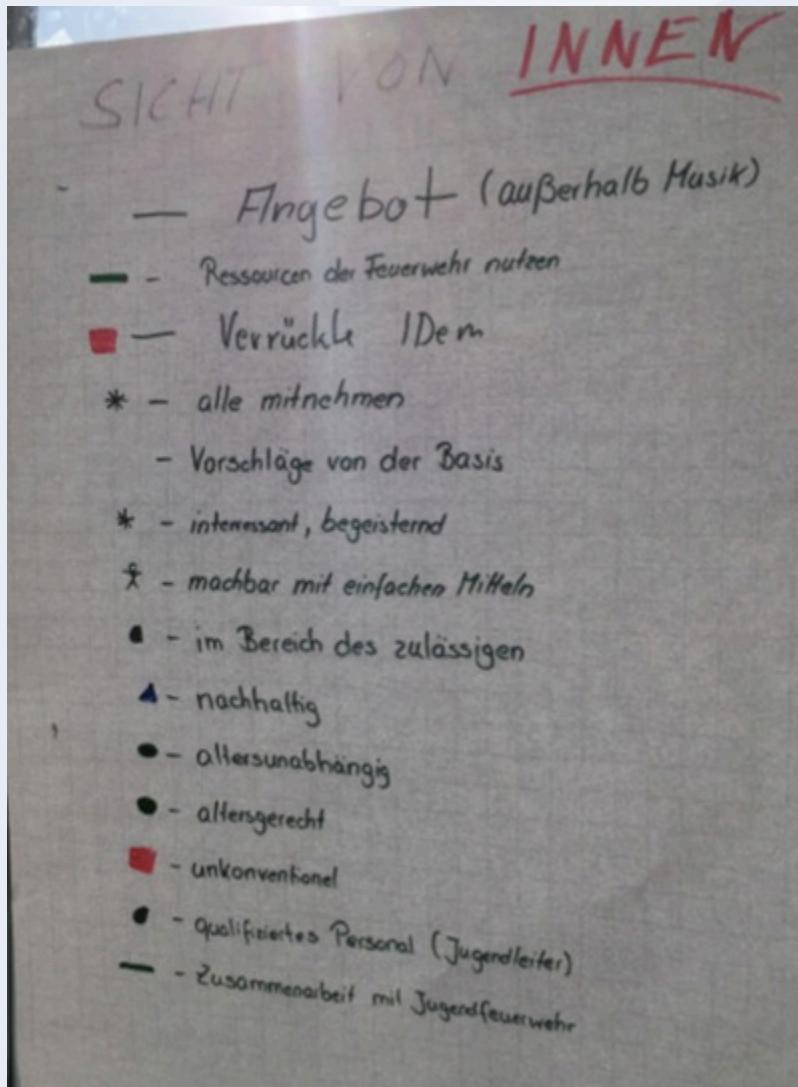 SICHT VON INNEN
— Angebot (außerhalb Musik)
- Ressourcen der Feuerwehr nutzen
— Verrückte IDeen
* - alle mitnehmen
- Vorschläge von der Basis
* - interessant, begeisternd
- machbar mit einfachen Mitteln
- im Bereich des zulässigen
- nachhaltig
- altersunabhängig
- altersgerecht
- unkonventionel
- qualifiziertes Personal (Jugendleiter)
- Zusammenarbeit mit Jugendfeuerwehr